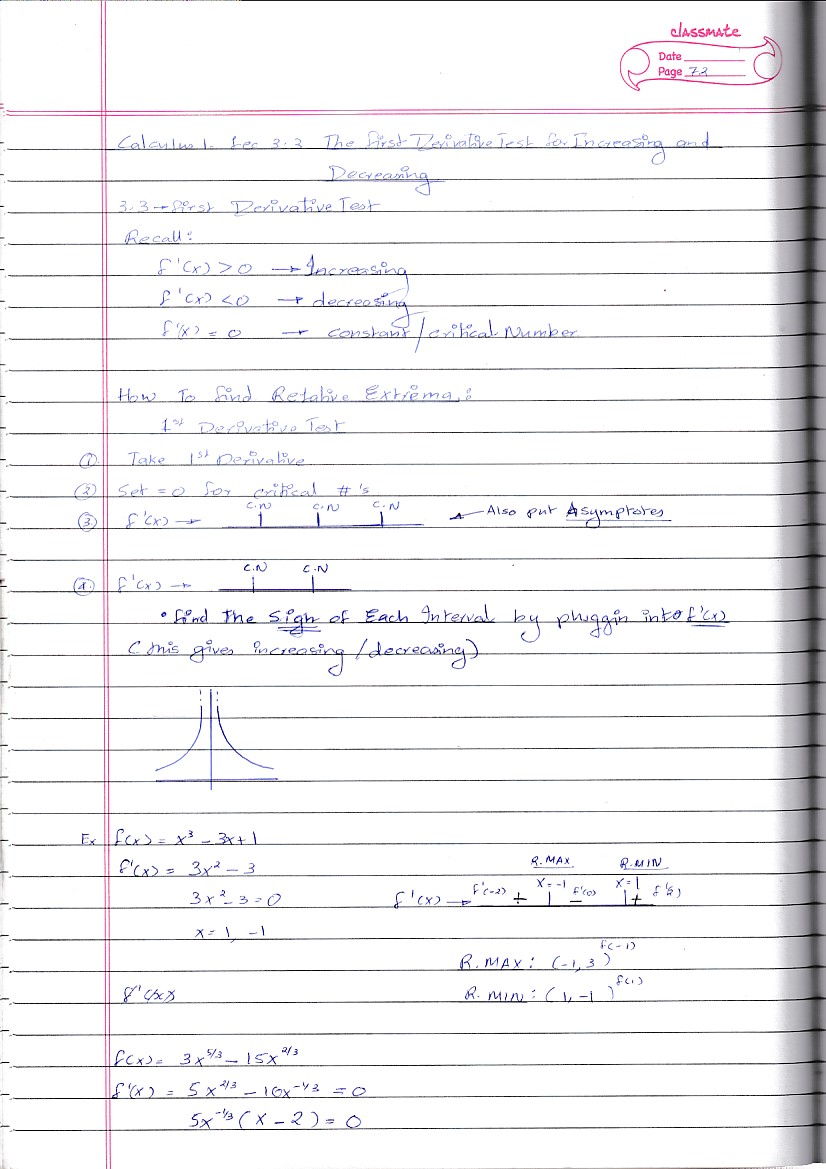 classmate
Date
Page 72
Calculus 1. Lec 3.3 The First Derivative Test for Increasing and
Decreasing
3.3 → First Derivative Test
Recall:
f'(x) > 0 → Increasing
f'(x) < 0 → decreasing
f'(x) = 0 → constant / critical Number
How To find Relative Extrema:
1st Derivative Test
① Take 1st Derivative
② Set = 0 for critical #'s
C.N C.N C.N
③ f'(x) → ← Also put Asymptotes
C.N C.N
④ f'(x) →
• find The Sign of Each Interval by pluggin into f'(x)
(this gives increasing / decreasing)
Ex f(x) = x³ - 3x + 1
f'(x) = 3x² - 3
R.MAX R.MIN
3x² - 3 = 0 f'(x) → f'(-2) + x = -1 f'(0) - x = 1 + f'(2)
x = 1, -1
R.MAX: (-1, 3) f(-1)
R.MIN: (1, -1) f(1)
f(x) = 3x^5/3 - 15x^2/3
f'(x) = 5x^2/3 - 10x^-1/3 = 0
5x^-1/3 (x - 2) = 0